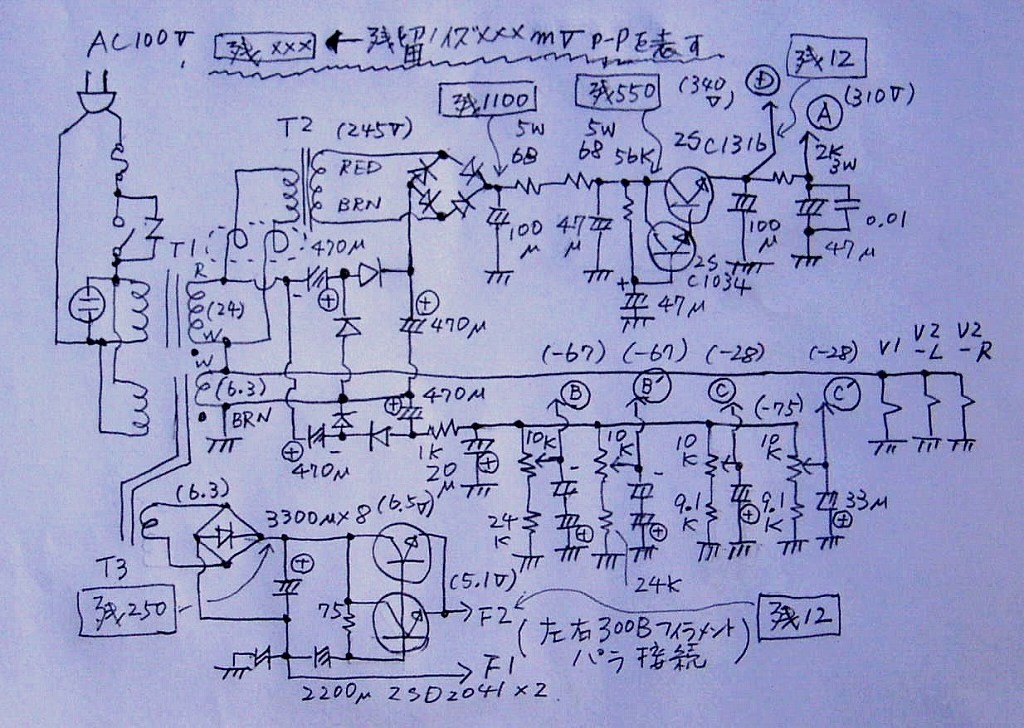 AC100V
残×××
←残留ノイズ×××mV P-Pを表す
残1100
残550
(340V)
D
残12
A
(310V)
T2
(245V)
RED
BRN
5W
68
5W
68
56K
2SC1316
2K
3W
100μ
47μ
2SC1034
47μ
100μ
47μ
0.01
T1
R
(24)
W
470μ
470μ
W
(6.3)
BRN
470μ
470μ
1K
20μ
(-67)
(-67)
(-28)
(-28)
V1
V2-L
V2-R
B
B'
C
(-75)
C'
10K
10K
10K
10K
24K
24K
9.1K
9.1K
33μ
(6.3)
T3
残250
3300μ×8
(6.5V)
75
(5.1V)
F2
F1
2200μ
2SD2041×2
残12
(左右300Bフィラメント
パラ接続)